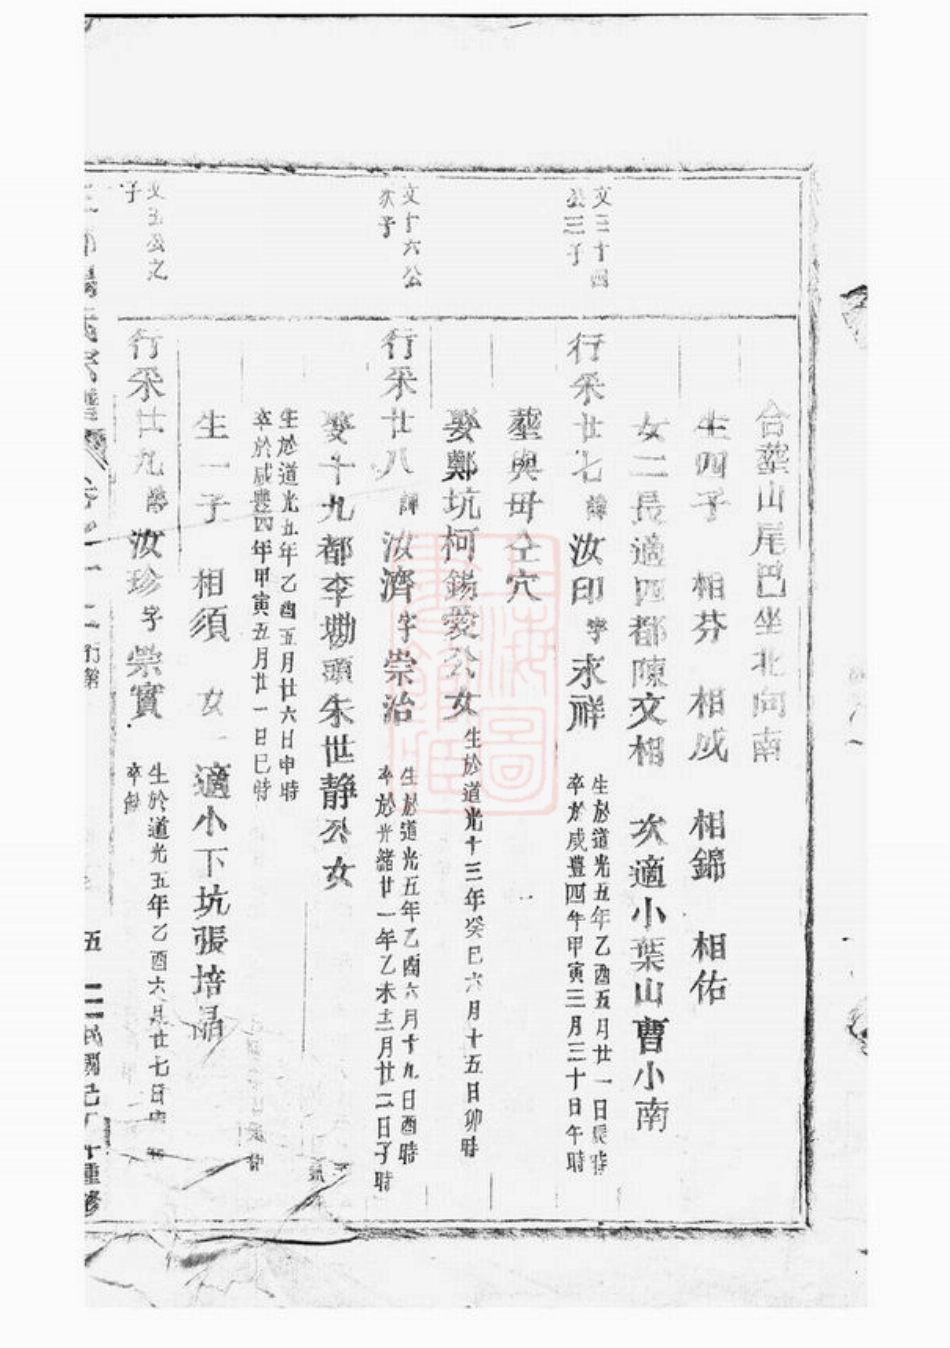 合塟山尾巴坐北向南
生四子 相芬 相成 相錦 相佑
女二長適四都陳文相 次適小葉山曹小南
文三十四
公三子
行采廿七 諱 汝印 字 永祥
生於道光五年乙酉五月廿一日辰時
卒於咸豐四年甲寅三月三十日午時
塟與毋仝穴
娶鄭坑柯錫愛公女 生於道光十三年癸巳六月十五日卯時
文十六公
次子
行采廿八 諱 汝濟 字 崇治
生於道光五年乙酉六月十九日酉時
卒於光緒廿一年乙未十二月廿二日子時
娶十九都李坳頭朱世靜公女
生於道光五年乙酉五月廿六日申時
卒於咸豐四年甲寅五月廿一日巳時
生一子 相須 女一適小下坑張培晶
文五公之
子
行采廿九 諱 汝珍 字 崇實
生於道光五年乙酉六月廿七日
卒於
行第
五
重修